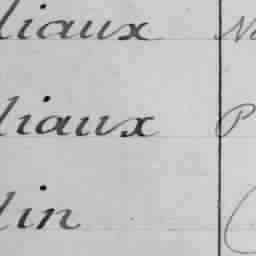 liaux N
liaux P
lin